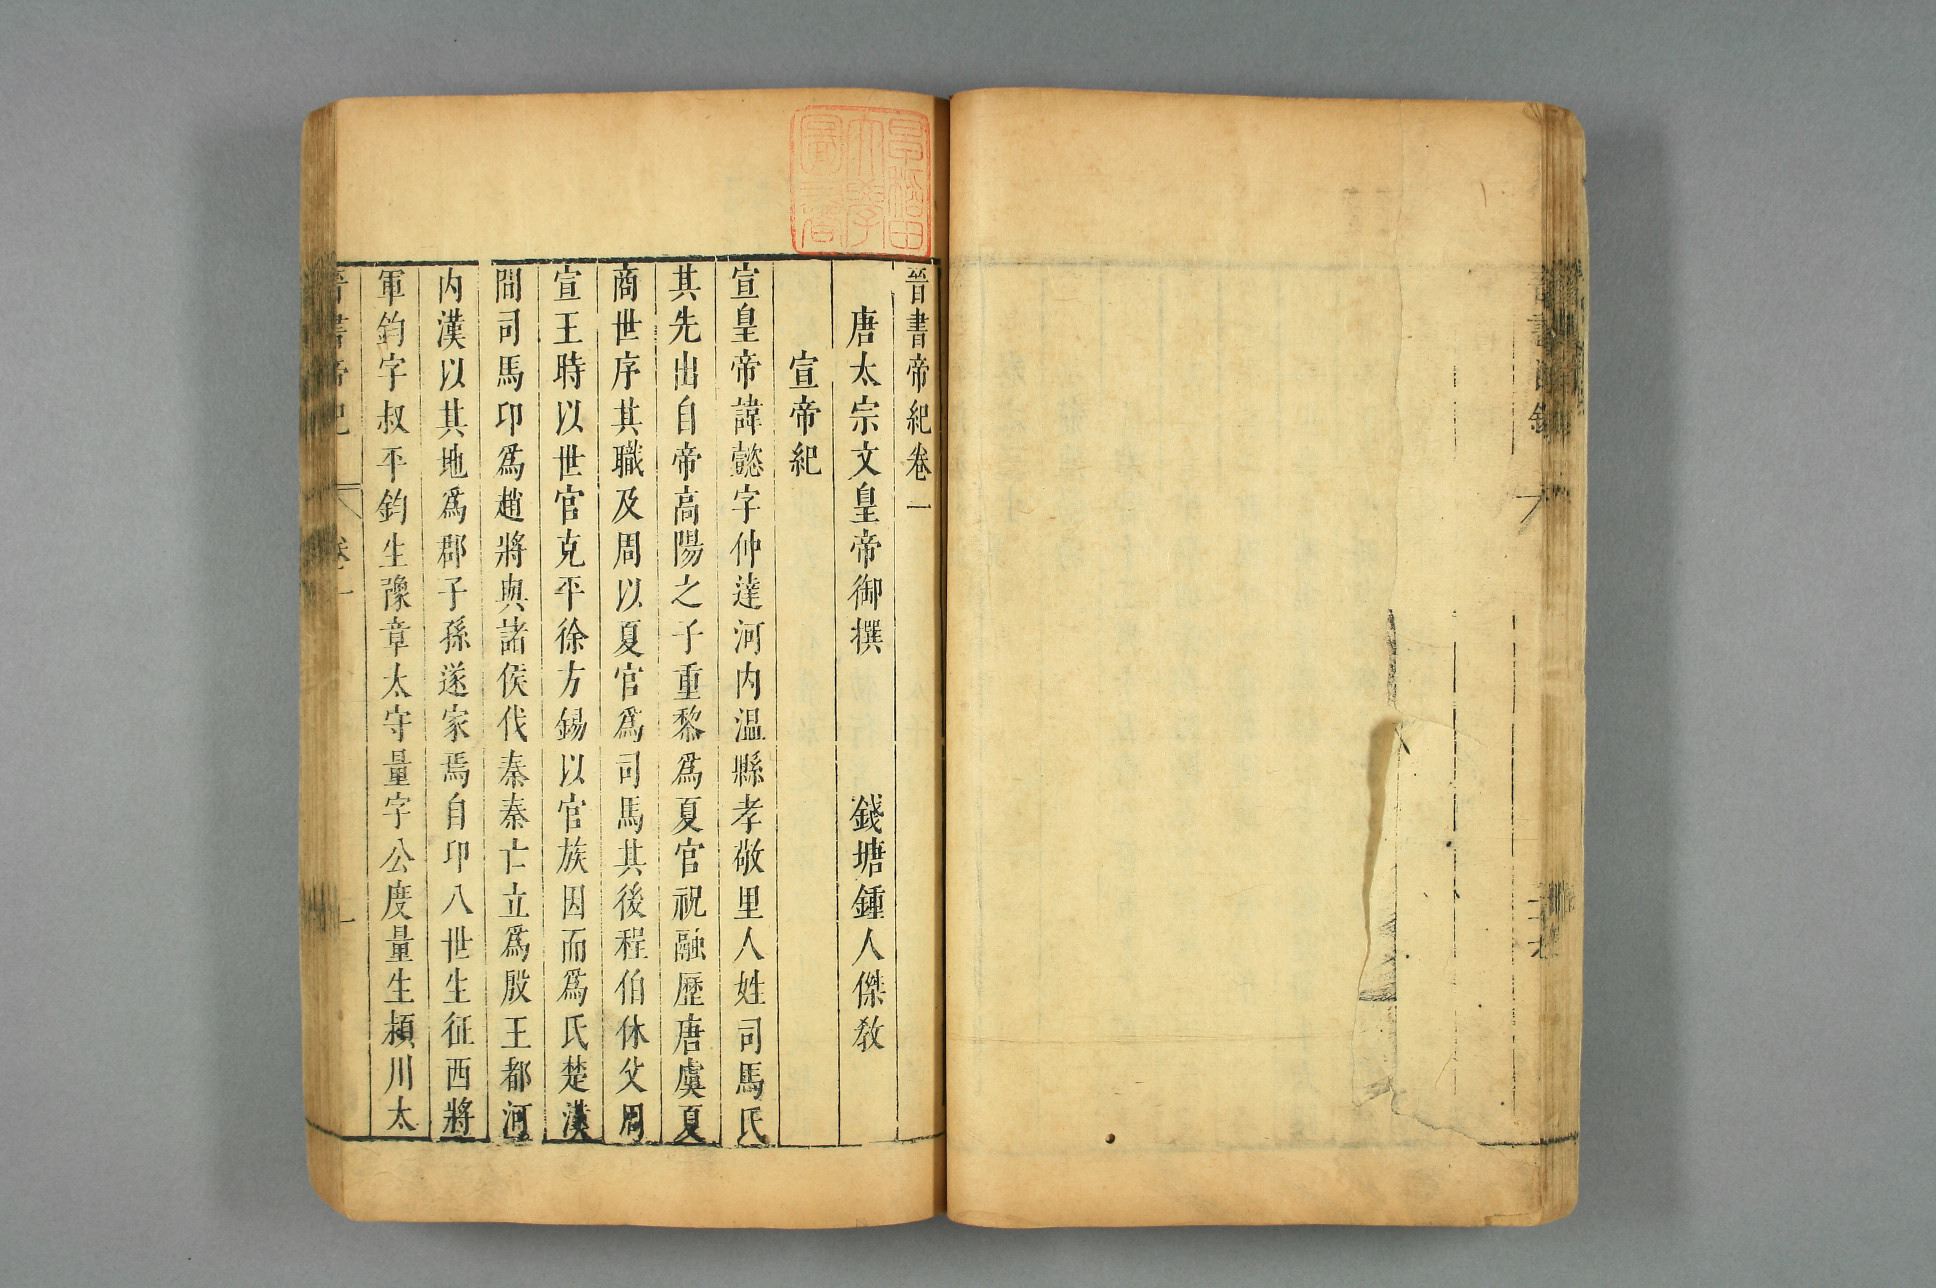 晉書帝紀卷一
唐太宗文皇帝御撰 錢塘鍾人傑敎
宣帝紀
宣皇帝諱懿字仲達河内温縣孝敬里人姓司馬氏
其先出自帝高陽之子重黎爲夏官祝融歷唐虞夏
商世序其職及周以夏官爲司馬其後程伯休父周
宣王時以世官克平徐方錫以官族因而爲氏楚漢
間司馬卬爲趙將與諸侯伐秦秦亡立爲殷王都河
内漢以其地爲郡子孫遂家焉自卬八世生征西將
軍鈞字叔平鈞生豫章太守量字公度量生潁川太
晉書帝紀 卷一 一
早稲田大學圖書